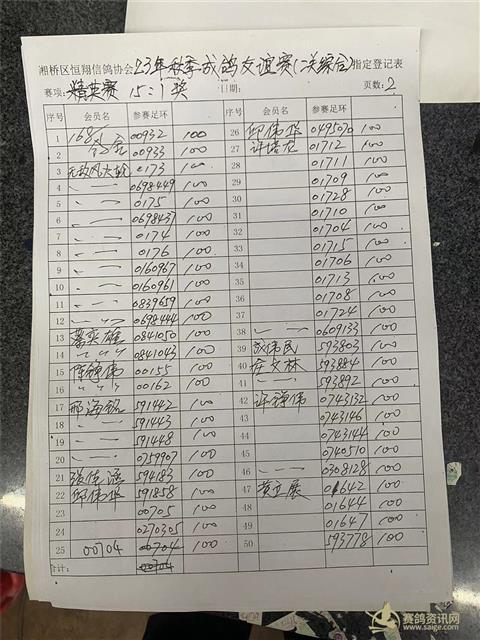 湘桥区恒翔信鸽协会23年秋季成鸽友谊赛(二关综合)指定登记表
赛项: 精英赛 15:1奖 日期: 页数:2
序号 会员名 参赛足环 序号 会员名 参赛足环
1 1681 00932 100 26 邱伟华 0495070 100
2 00933 100 27 许培龙 01712 100
3 无敌风火轮 0173 100 28 01711 100
4 〃 0698449 100 29 01709 100
5 〃 0175 100 30 01728 100
6 〃 0698437 100 31 01710 100
7 〃 0174 100 32 01704 100
8 〃 0176 100 33 01715 100
9 〃 0160967 100 34 01706 100
10 〃 0160961 100 35 01713 100
11 〃 0839659 100 36 01708 100
12 〃 0698444 100 37 01724 100
13 蔡奕雄 0841050 100 38 〃 0609133 100
14 〃 0841043 100 39 伟民 593803 100
15 伟 00155 100 40 庄文林 593884 100
16 〃 00162 100 41 〃 593892 100
17 邢海 591442 100 42 许禅伟 0743532 100
18 〃 591443 100 43 0743146 100
19 〃 591448 100 44 0743144 100
20 〃 0759907 100 45 0740510 100
21 张伟 594183 100 46 〃 0308128 100
22 邱伟华 591858 100 47 黄立展 01642 100
23 00705 100 48 01644 100
24 0270305 100 49 01647 100
25 00704 00704 100 50 593778 100
合计: 00704
赛鸽资讯网
www.saige.com